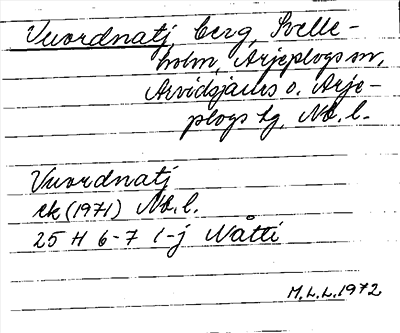 Vuordnatj berg, Svelle-
holm, Arjeplogs sn,
Arvidsjaurs o. Arje-
plogs tg, Nb. l.
Vuordnatj
ek (1971) Nb. l.
25 H 6-7 i-j Nåtti
M.L.L. 1972